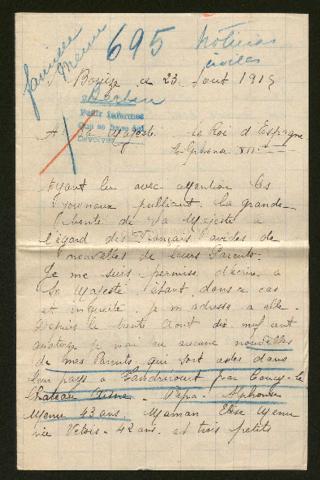 famille
Menu
695
Noticias
civiles
23 Août 1915
Berlin
Pedir informes
A Sa Majesté le Roi d'Espagne
Alphonse XIII
Ayant lu avec attention les
Journaux publiant la grande
bonté de Sa Majesté a
l'égard des Français avides de
nouvelles de leurs Parents.
Je me suis permise d'écrire a
Sa Majesté l'étant dans ce cas
et inquiète je m'adresse a elle.
Depuis le trente Aout dix neuf cent
quatorze je n'ai eu aucune nouvelles
de mes Parents, qui sont restés dans
leur pays a Landricourt par Coucy-le
Château Aisne. Papa. Alphonse
Menu 43 ans. Maman Elise Menu
née Vetois. 42 ans. et trois petits